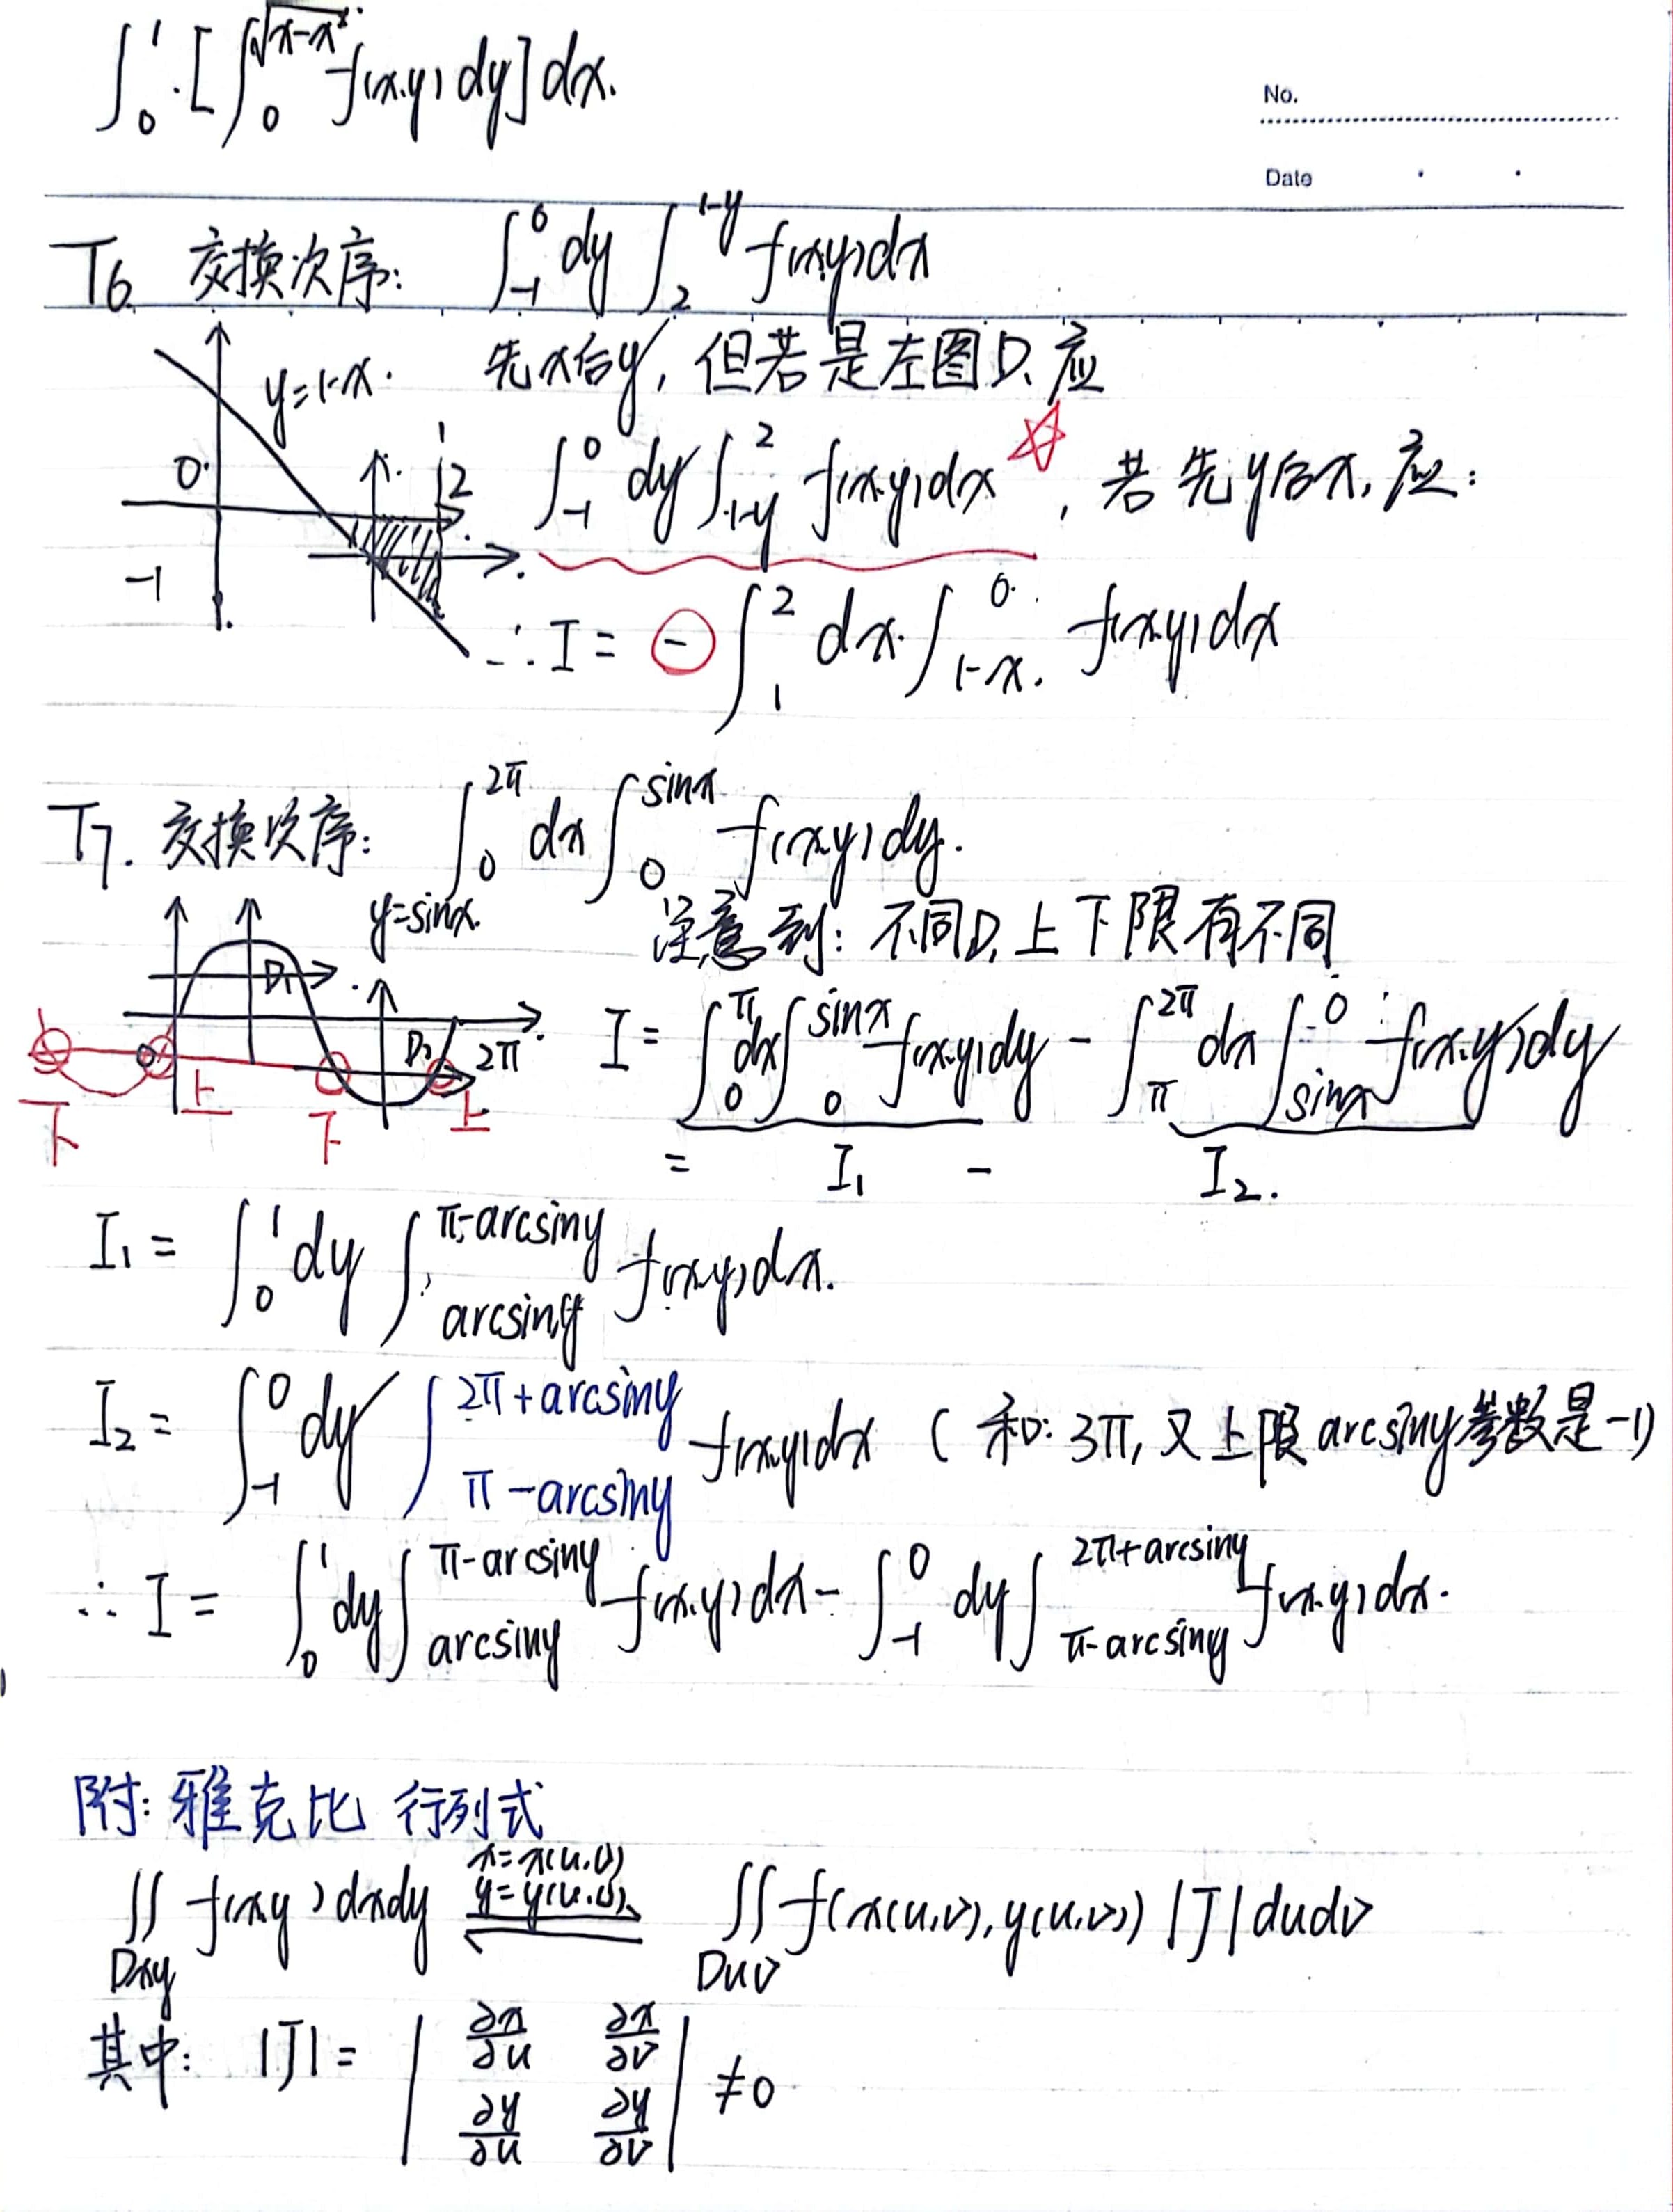 ∫₀¹[∫₀^{√(x-x²)} f(x,y)dy]dx.
No.
Date
T6. 交换次序: ∫₋₁⁰ dy ∫₂^{1-y} f(x,y)dx
y=1-x. 先x后y, 但若是左图D, 应
0 2 ∫₋₁⁰ dy ∫_{1-y}^{2} f(x,y)dx ☆, 若先y后x, 应:
-1
∴ I = ⊖ ∫₁² dx ∫_{1-x}^{0} f(x,y)dx
T7. 交换次序: ∫₀^{2π} dx ∫₀^{sinx} f(x,y)dy.
y=sinx. 注意到: 不同D, 上下限有不同
D₁
0 D₂ 2π I = ∫₀^π dx ∫₀^{sinx} f(x,y)dy - ∫_π^{2π} dx ∫_{sinx}^{0} f(x,y)dy
下 上 下 上
= I₁ - I₂.
I₁ = ∫₀¹ dy ∫_{arcsiny}^{π-arcsiny} f(x,y)dx.
I₂ = ∫₋₁⁰ dy ∫_{π-arcsiny}^{2π+arcsiny} f(x,y)dx ( 和: 3π, 又上限arcsiny参数是-1)
∴ I = ∫₀¹ dy ∫_{arcsiny}^{π-arcsiny} f(x,y)dx - ∫₋₁⁰ dy ∫_{π-arcsiny}^{2π+arcsiny} f(x,y)dx.
附: 雅克比 行列式
x=x(u,v)
y=y(u,v)
∬_{Dxy} f(x,y)dxdy ∬_{Duv} f(x(u,v),y(u,v)) |J| dudv
其中: |J| = | ∂x/∂u ∂x/∂v |
| ∂y/∂u ∂y/∂v | ≠0